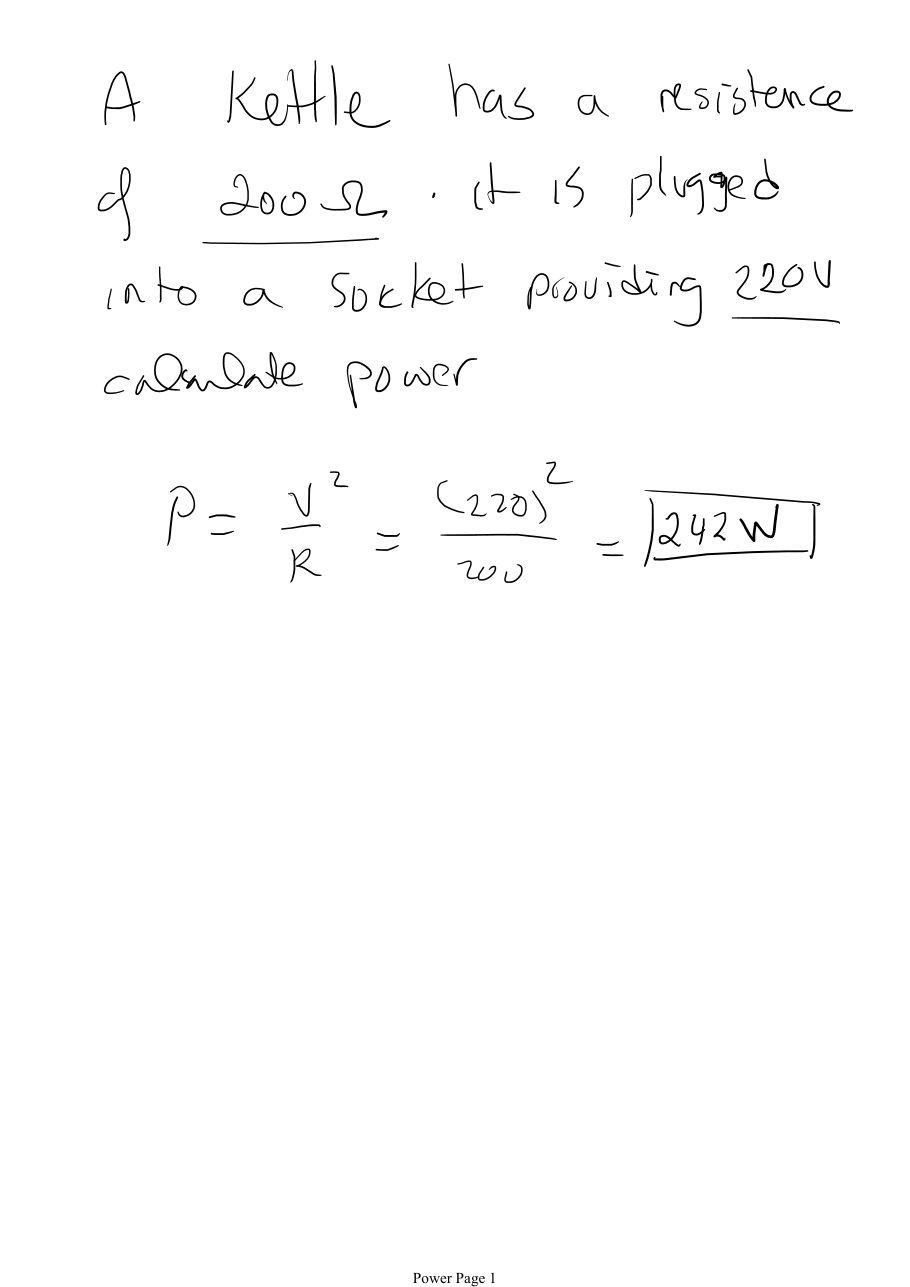 A Kettle has a resistence
of 200Ω. it is plugged
into a Socket providing 220V
calculate power
P = V²/R = (220)²/200 = 242W
Power Page 1